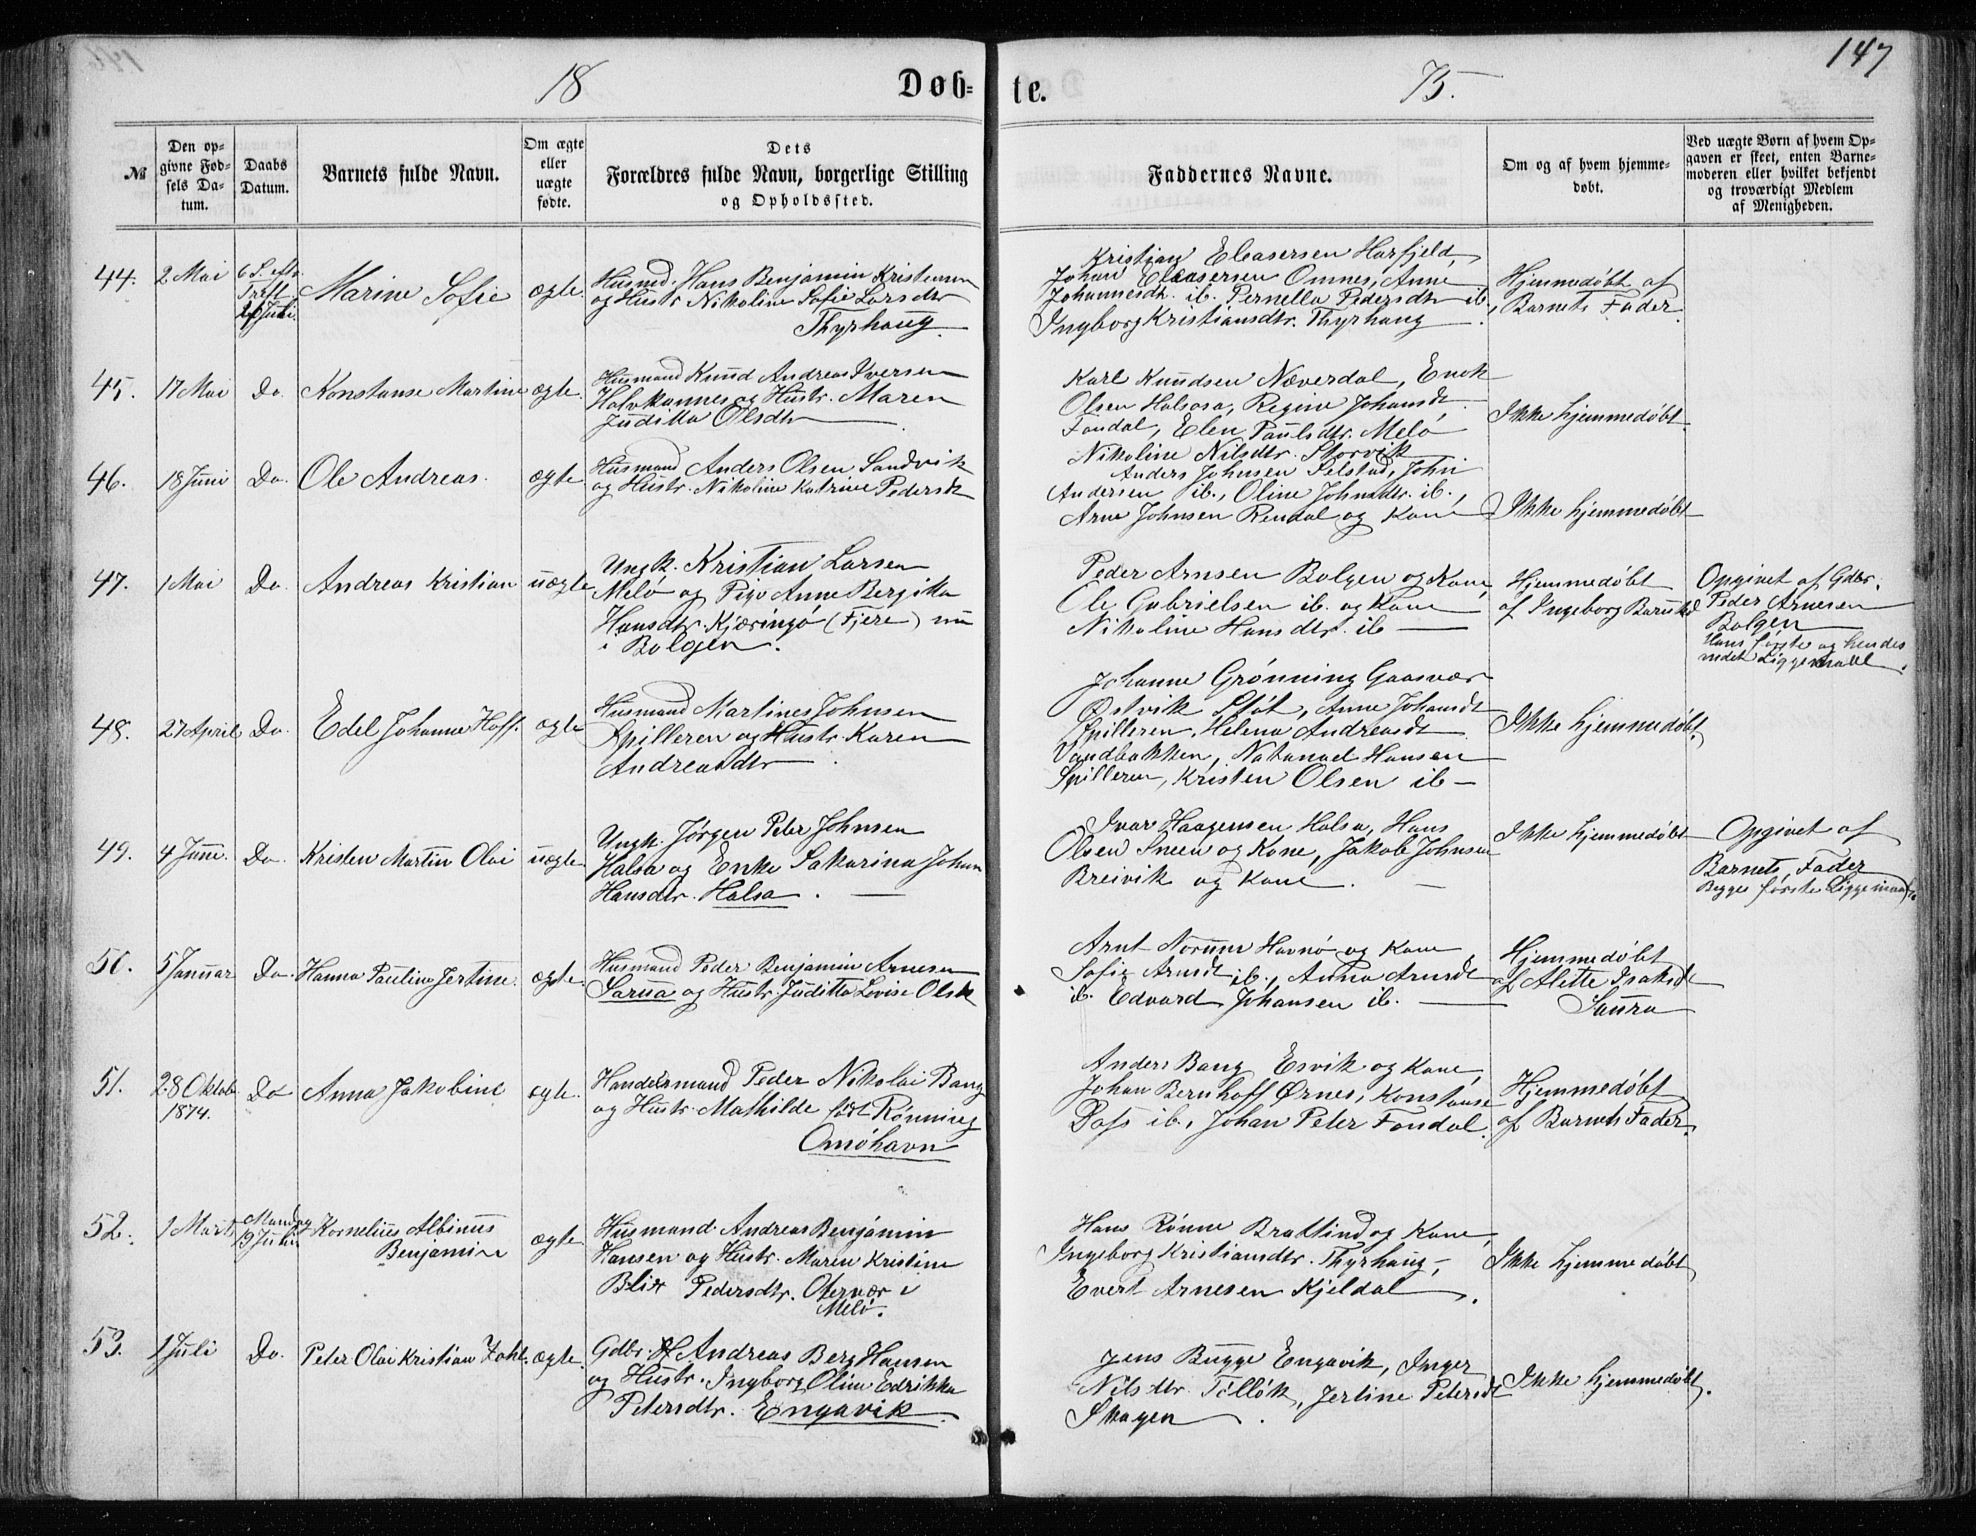 147
18 Døb-te. 75.
№
Den op-
givne Fød-
sels Da-
tum.
Daabs
Datum.
Barnets fulde Navn.
Om ægte
eller
uægte
fødte.
Dets
Forældres fulde Navn, borgerlige Stilling
og Opholdssted.
Faddernes Navne.
Om og af hvem hjemme-
døbt.
Ved uægte Børn af hvem Op-
gaven er skeet, enten Barne-
moderen eller hvilket bekjendt
og troværdigt Medlem
af Menigheden.
44. 2 Mai
6 S. eftr.
Treft.
Juli.
Marine Sofie
ægte.
Husmd. Hans Benjamin Kristensen
og Hustr. Nikoline Sofie Larsdtr
Thyrhaug.
Kristian Eleasersen Harfjeld,
Johan Eleasersen Omnes, Anne
Johannesdtr. ib. Pernella Pedersdtr ib.,
Ingeborg Kristiansdtr. Thyrhaug
Hjemmedøbt af
Barnets Fader.
45. 17 Mai Do. Konstanse Martine ægte.
Husmand Knud Andreas Iversen
Halvkannes og Hustr. Maren
Juditta Olsdtr
Karl Knudsen Neverdal, Enok
Olsen Halsosa, Regine Johansdt,
Fondal, Elen Paulsdtr. Melø
Nikoline Nilsdtr. Storvik
Ikke hjemmedøbt
46. 18 Juni Do. Ole Andreas. ægte
Husmand Anders Olsen Sandvik
og Hustr. Nikoline Katrine Pedersdt
Anders Johnsen Selstad, John
Andersen ib., Oline Johnsdtr. ib.,
Arne Johnsen Rendal og Kone
Ikke hjemmedøbt
47. 1 Mai Do. Andreas Kristian uægte
Ungk. Kristian Larsen
Melø og Pige Anne Bergitta
Hansdtr. Kjæringø (Fjere) nu
i Bolgen.
Peder Arnsen Bolgen og Kone,
Ole Gabrielsen ib. og Kone
Nikoline Hansdtr. ib
Hjemmedøbt
af Ingeborg
Opgivet af Gdbr.
Peder Arnesen
Bolgen
Hans første og hendes
andet Liggemaal.
48. 27 April Do. Edel Johanne Hoff. ægte
Husmand Martines Johnsen
Spilleren og Hustr. Karen
Andreasdtr
Johanne Grønning Gaasvær
Østvik Støt, Anne Johansdt
Spilleren, Helena Andreasdt
Vandbakken, Natanael Hansen
Spilleren, Kristen Olsen ib
Ikke hjemmedøbt.
49. 4 Juni. Do. Kristen Martin Olai uægte
Ungk. Jørgen Peter Johnsen
Halsa og Enke Sakarina Johan
Hansdtr. Halsa.
Ivar Haagensen Halsa, Hans
Olsen Sneen og Kone, Jakob Johnsen
Breivik og Kone.
Ikke hjemmedøbt
Opgivet af
Barnets Fader
Begges første Liggemaal.
50. 5 Januar Do. Hanna Pauline Jertine. ægte.
Husmand Peder Benjamin Arnesen
Saura og Hustr. Juditta Lovise Olsdt
Arnt Norum Havnø og Kone
Sofie Arnsdt ib., Anna Arnsdt
ib. Edvard Johansen ib.
Hjemmedøbt
af Alette Isaksdt
Saura
51. 28 Oktob.
1874.
Do Anna Jakobine ægte.
Handelsmand Peder Nikolai Bang
og Hustr. Mathilde født Rønning
Omøhavn
Anders Bang Esvik og Kone,
Johan Bernhoff Ørnes, Konstanse
Dass ib., Johan Peter Fondal.
Hjemmedøbt
af Barnets Fader.
52. 1 Marts
Mandag
19 Juli
Kornelius Albinus
Benjamin
ægte
Husmand Andreas Benjamin
Hansen og Hustr. Maren Kristine
Blix Pedersdtr. Otervær i
Melø.
Hans Rønne Brattind og Kone,
Ingeborg Kristiansdtr. Thyrhaug,
Evert Arnesen Kjeldal.
Ikke hjemmedøbt
53. 1 Juli Do. Peter Olai Kristian Zahl. ægte.
Gdbr. Andreas Berg Hansen
og Hustr. Ingeborg Oline Edrikka
Petersdtr. Engavik.
Jens Bugge Engavik, Inger
Nilsdtr. Selløk, Jertine Petersdt
Skagen.
Ikke hjemmedøbt.